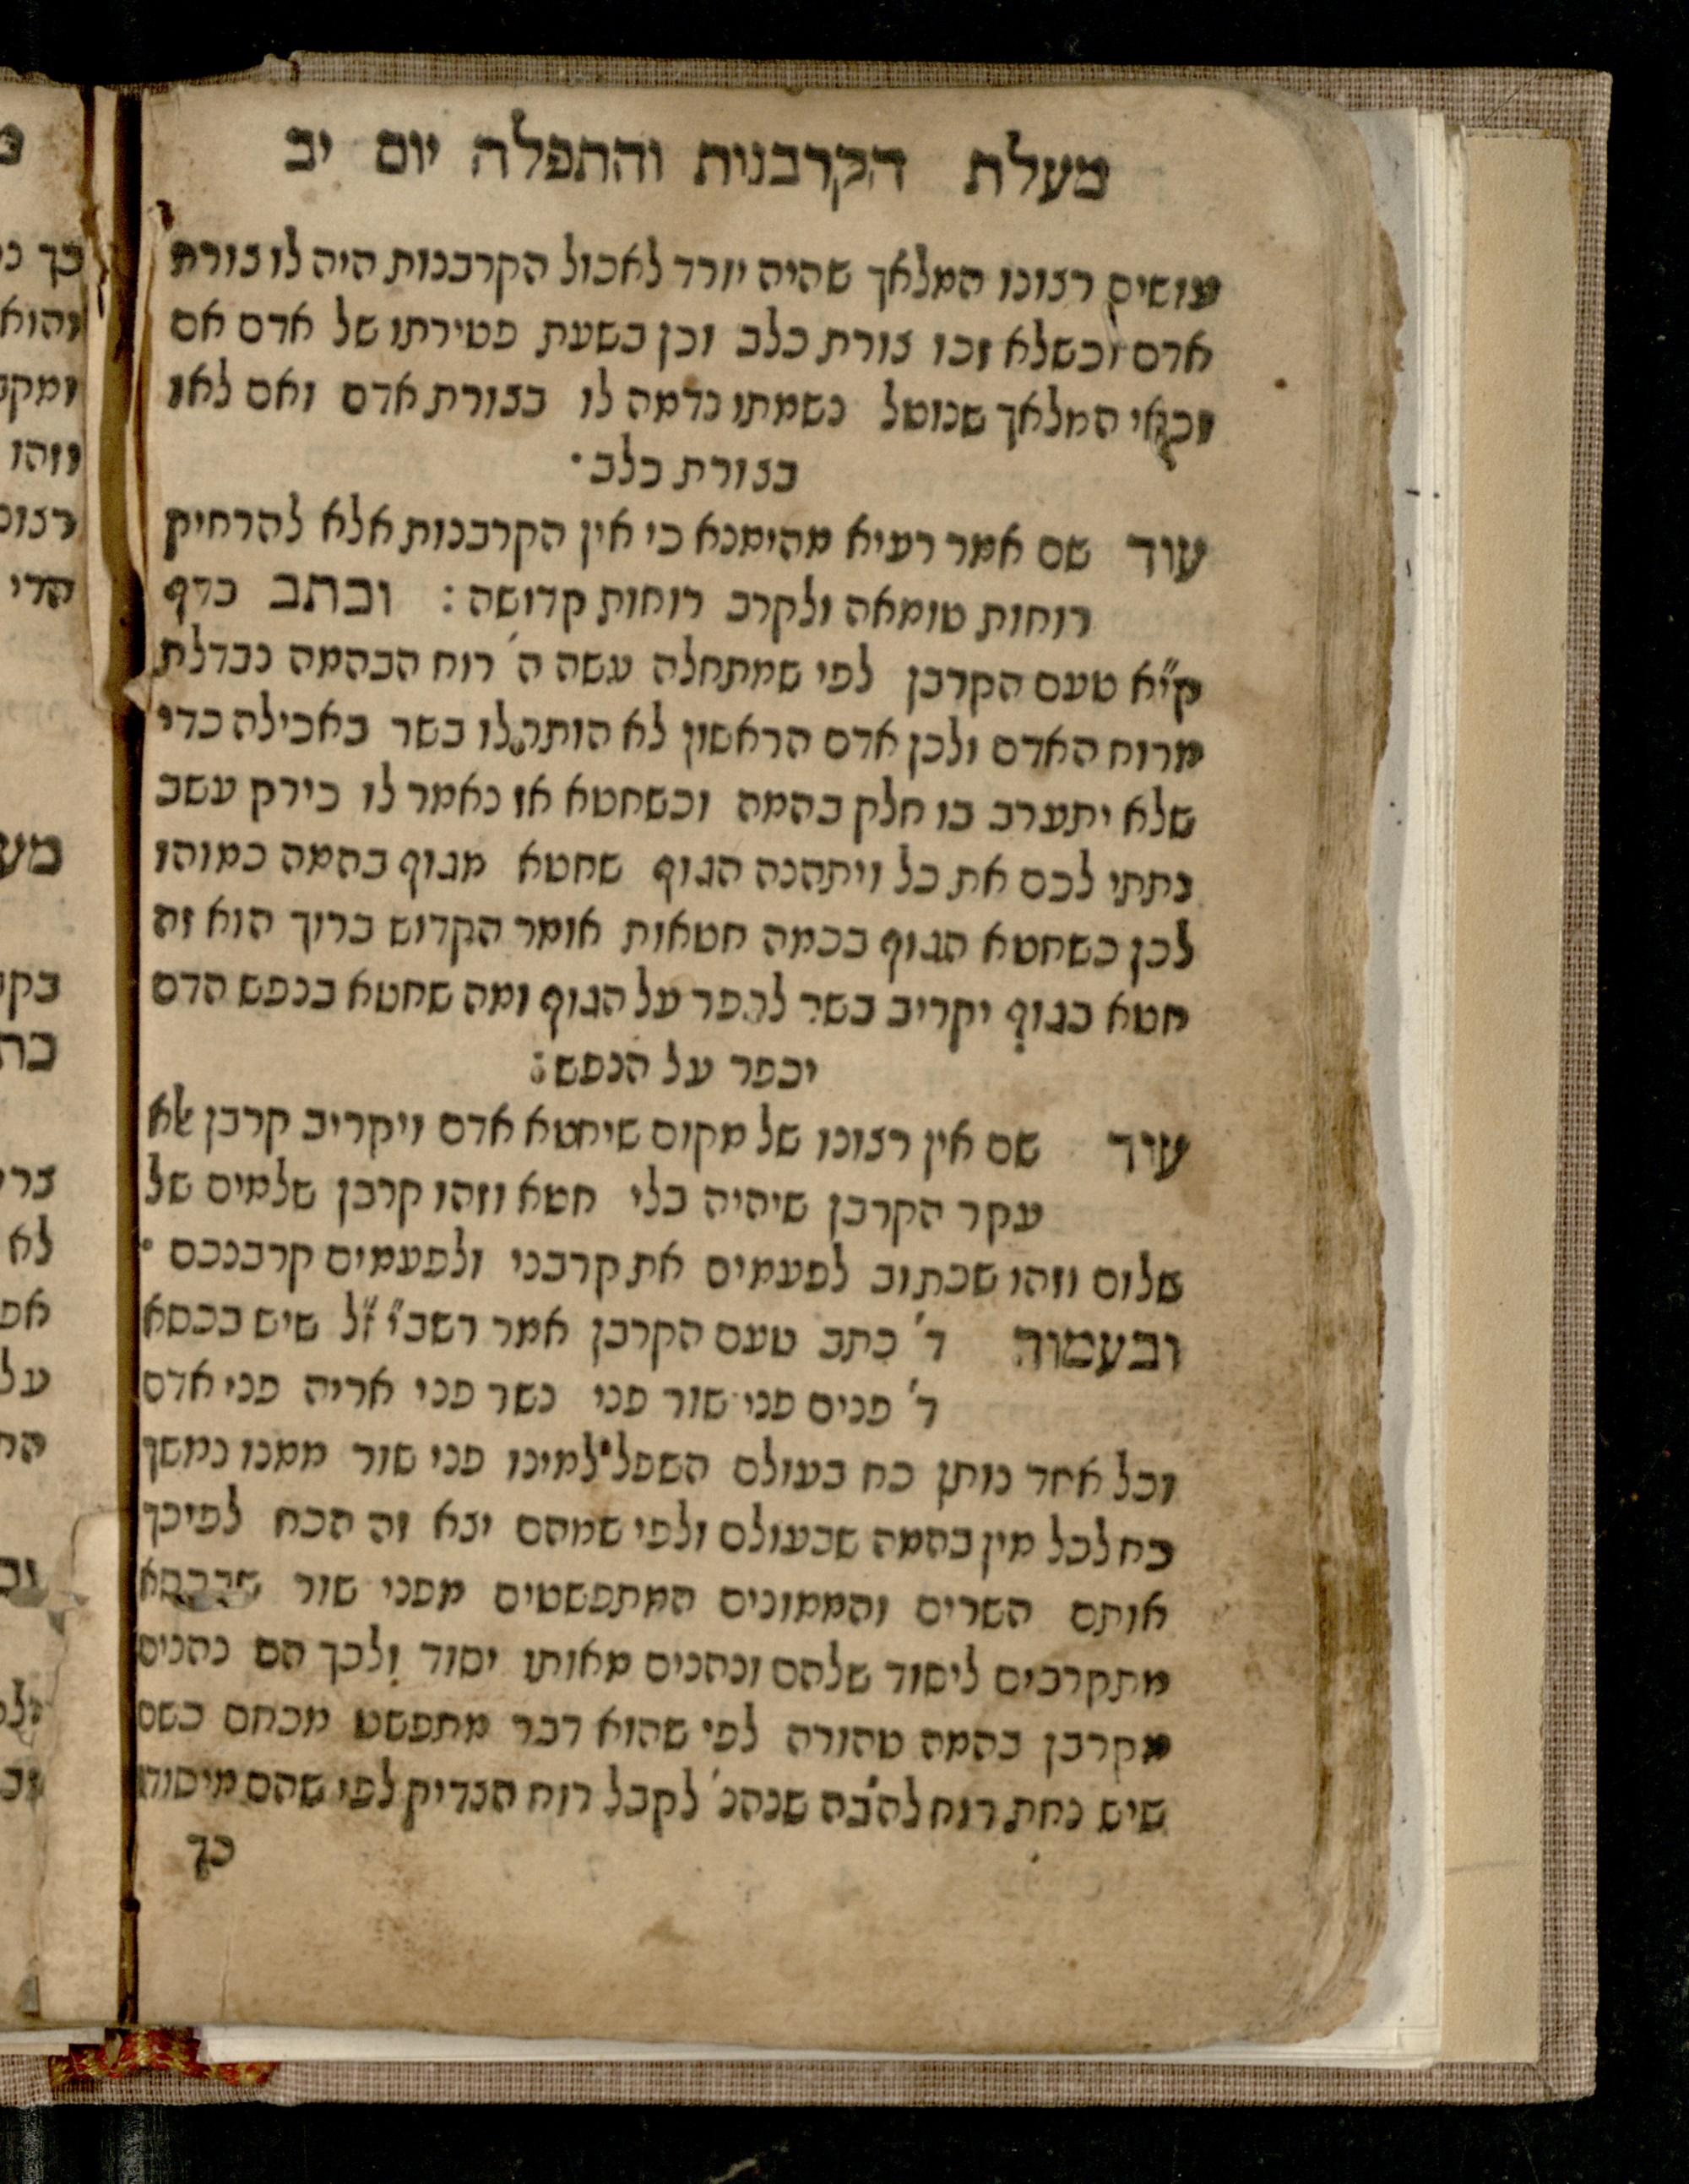 מעלת הקרבנות והתפלה יום יב
עושים רצונו המלאך שהיה יורד לאכול הקרבנות היה לו צורת
אדם וכשלא זכו צורת כלב וכן בשעת פטירתו של אדם אם
זכאי המלאך שנוטל נשמתו נדמה לו בצורת אדם ואם לאו
בצורת כלב·
עוד שם אמר רעיא מהימנא כי אין הקרבנות אלא להרחיק
רוחות טומאה ולקרב רוחות קדושה: וכתב בדף
ק"יא טעם הקרבן לפי שמתחלה עשה ה' רוח הבהמה נבדלת
מרוח האדם ולכן אדם הראשון לא הותר לו בשר באכילה כדי
שלא יתערב בו חלק בהמה וכשחטא אז נאמר לו כירק עשב
נתתי לכם את כל ויתהנה הגוף שחטא מגוף בהמה כמוהו
לכן כשחטא הגוף בכמה חטאות אומר הקדוש ברוך הוא זה
חטא בגוף יקריב בשר לכפר על הגוף ומה שחטא בנפש הדם
יכפר על הנפש:
עוד שם אין רצונו של מקום שיחטא אדם ויקריב קרבן אלא
עקר הקרבן שיהיה בלי חטא וזהו קרבן שלמים של
שלום וזהו שכתוב לפעמים את קרבני ולפעמים קרבנכם ·
ובעמוד ד' כתב טעם הקרבן אמר רשב"י ז"ל שיש בכסא
ד' פנים פני שור פני נשר פני אריה פני אדם
וכל אחד נותן כח בעולם השפל למינו פני שור ממנו נמשך
כח לכל מין בהמה שבעולם ולפי שמהם יצא זה הכח לפיכך
אותם השרים והממונים המתפשטים מפני שור שבכסא
מתקרבים ליסוד שלהם ונהנים מאותו יסוד ולכך הם נהנים
מקרבן בהמה טהורה לפי שהוא דבר מתפשט מכחם כשם
שיש נחת רוח להב"ה שנהנ' לקבל רוח הצדיק לפי שהם מיסודו
כך